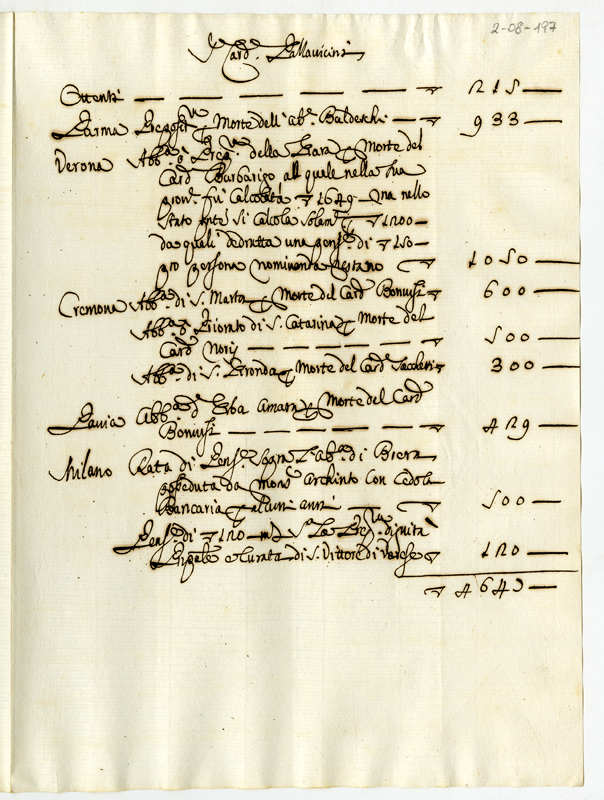 2-08-197
Card. Pallavicini
Ottenti — — — — — 215 —
Parma p Morte dell' ab. Baldeschi — 933 —
Verona Abb.a della p Morte del
Card Barbarigo all quale nella sua
fù Calcolata 1649 — ma nello
Stato si Calcola Solam.te 1200 —
da quali dedratta una pens. di 150 —
pro persona nominanda restano 1050 —
Cremona Abb.a di S. Marta p Morte del Card Bonvisi 600 —
Abb.a di S. Catarina p Morte del
Card Noris — — — — 500 —
Abb.a di S. p Morte del Card Sacchetti 300 —
Pavia Abb.a d' Erba Amara p Morte del Card
Bonvisi — — — — — 429 —
Milano Rata di Pens. Sopra l'ab.a di Brera
da Mons. Archinto con Cedola
Bancaria p alcuni anni — 500 —
Pens. di 120 — S.a la dignità
e Curata di S. Vittore di Varese 120 —
4649 —